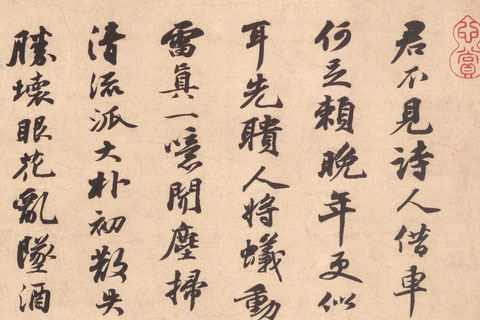 君不見詩人借車
何足賴晚年更似
耳先聵人將蟻動
雷眞一噫聞塵掃
清流派大朴初散失
勝壞眼花亂墜酒